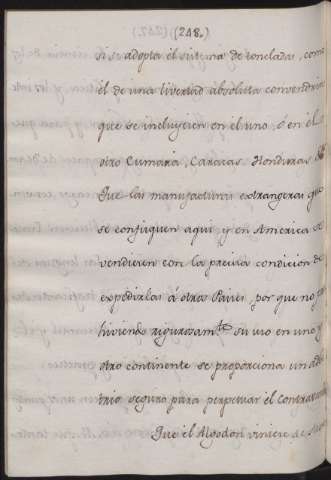 (248.)
si se adopta el sistema de toneladas, como
el de una libertad absoluta convendria
que se incluyesen en el uno ó en el
otro Cumaná, Caracas, Honduras &c
Que las manufacturas extrangeras que
se confisquen aqui, y en America se
vendiesen con la precisa condicion de
expedirlas á otros Paises, por que no pro
hiviendo rigurosam.te su uso en uno y
otro continente se proporciona un
trio seguro para perpetuar el contravando
Que el Algodon viniese de